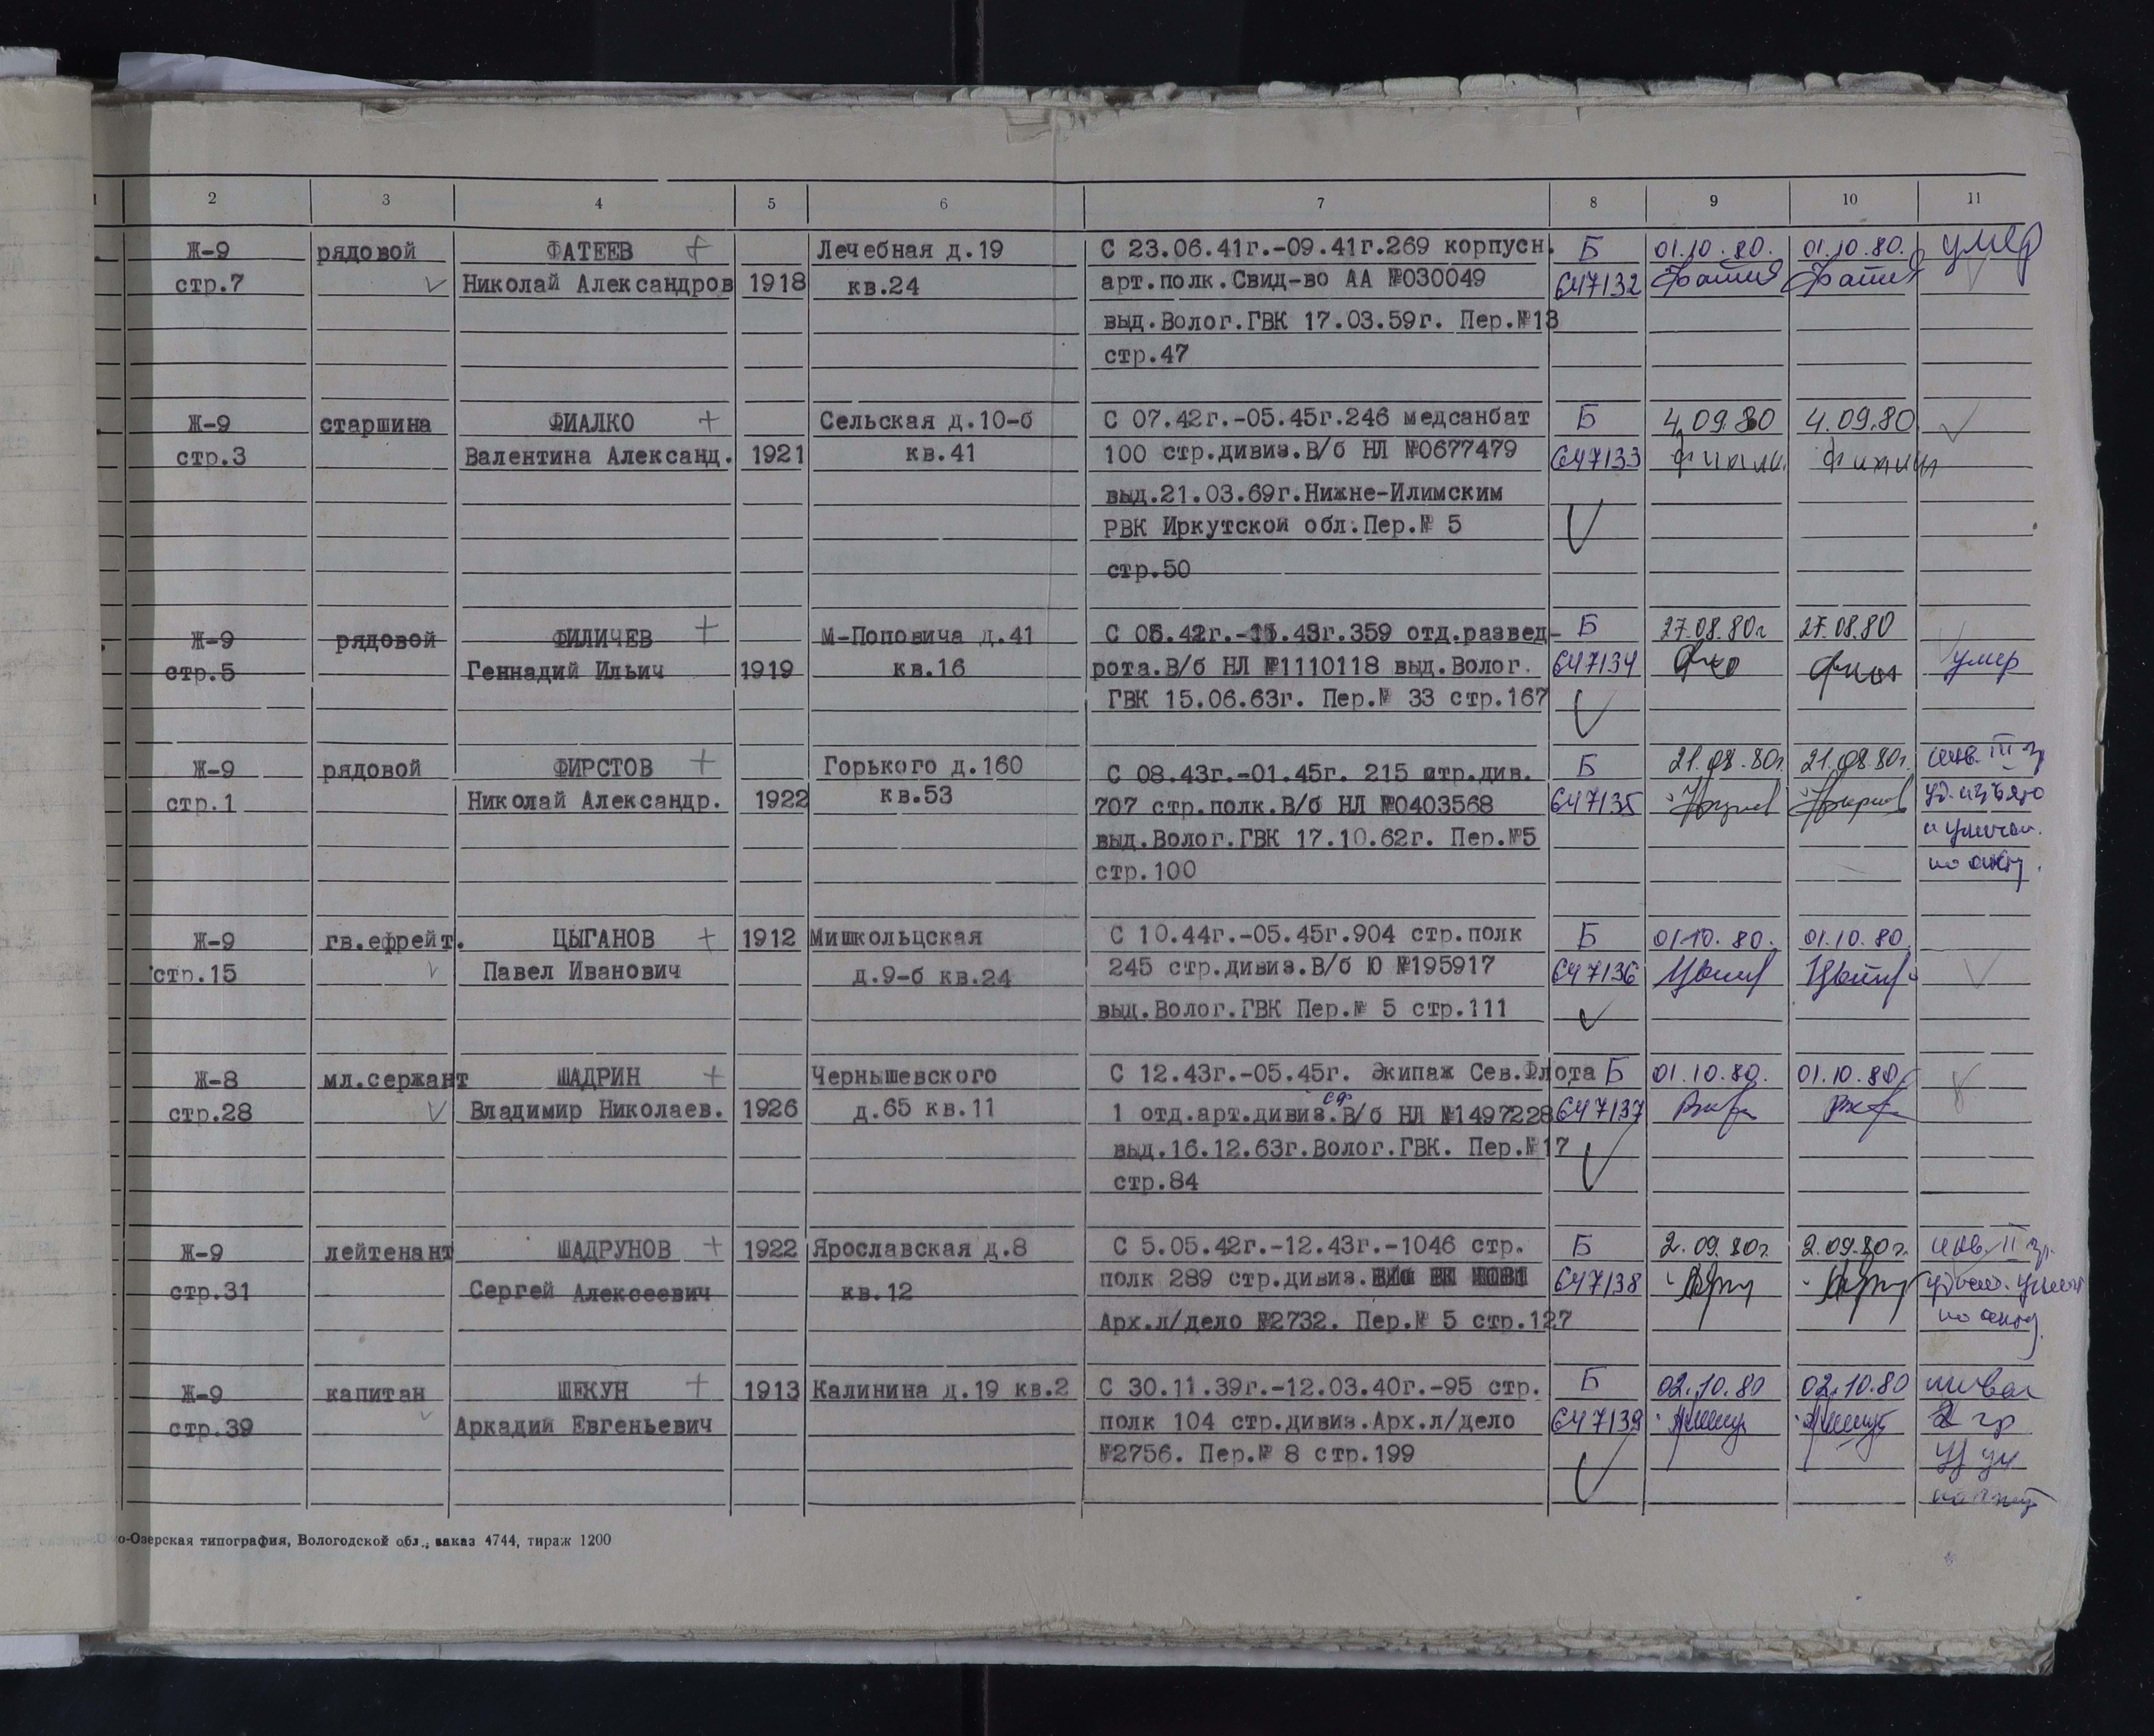 2 3 4 5 6 7 8 9 10 11
Ж-9 рядовой ФАТЕЕВ + Лечебная д.19 С 23.06.41г.-09.41г.269 корпусн. Б 01.10.80. 01.10.80. умер
стр.7 Николай Александров 1918 кв.24 арт.полк.Свид-во АА №030049 647132
выд.Волог.ГВК 17.03.59г. Пер.№13
стр.47
Ж-9 старшина ФИАЛКО + Сельская д.10-б С 07.42г.-05.45г.246 медсанбат Б 4.09.80 4.09.80
стр.3 Валентина Александ. 1921 кв.41 100 стр.дивиз.В/б НЛ №0677479 647133
выд.21.03.69г.Нижне-Илимским
РВК Иркутской обл.Пер.№ 5
стр.50
Ж-9 рядовой ФИЛИЧЕВ + М-Поповича д.41 С 42г.- 359 отд.развед- Б 27.08.80г 27.08.80
стр.5 Геннадий Ильич 1919 кв.16 рота.В/б НЛ №1110118 выд.Волог. 647134 умер
ГВК 15.06.63г. Пер.№ 33 стр.167
Ж-9 рядовой ФИРСТОВ + Горького д.160 С 08.43г.-01.45г. 215 стр.див. Б 21.08.80г. 21.08.80г. инв. III гр
стр.1 Николай Александр. 1922 кв.53 707 стр.полк.В/б НЛ №0403568 647135 уд. изъято
выд.Волог.ГВК 17.10.62г. Пер.№5
стр.100 по акту.
Ж-9 гв.ефрейт. ЦЫГАНОВ + 1912 Мишкольцская С 10.44г.-05.45г.904 стр.полк Б 01.10.80. 01.10.80.
стр.15 Павел Иванович д.9-б кв.24 245 стр.дивиз.В/б Ю №195917 647136
выд.Волог.ГВК Пер.№ 5 стр.111
Ж-8 мл.сержант ШАДРИН + Чернышевского С 12.43г.-05.45г. Экипаж Сев.Флота Б 01.10.80. 01.10.80.
стр.28 Владимир Николаев. 1926 д.65 кв.11 1 отд.арт.дивиз.В/б НЛ №1497228 647137
выд.16.12.63г.Волог.ГВК. Пер.№17
стр.84
Ж-9 лейтенант ШАДРУНОВ + 1922 Ярославская д.8 С 5.05.42г.-12.43г.-1046 стр. Б 2.09.80г. 2.09.80г. инв. II гр.
стр.31 Сергей Алексеевич кв.12 полк 289 стр.дивиз. 647138
Арх.л/дело №2732. Пер.№ 5 стр.127 по акту
Ж-9 капитан ШЕКУН + 1913 Калинина д.19 кв.2 С 30.11.39г.-12.03.40г.-95 стр. Б 02.10.80 02.10.80 инвал
стр.39 Аркадий Евгеньевич полк 104 стр.дивиз.Арх.л/дело 647139 2 гр
№2756. Пер.№ 8 стр.199
о-Озерская типография, Вологодской обл., заказ 4744, тираж 1200